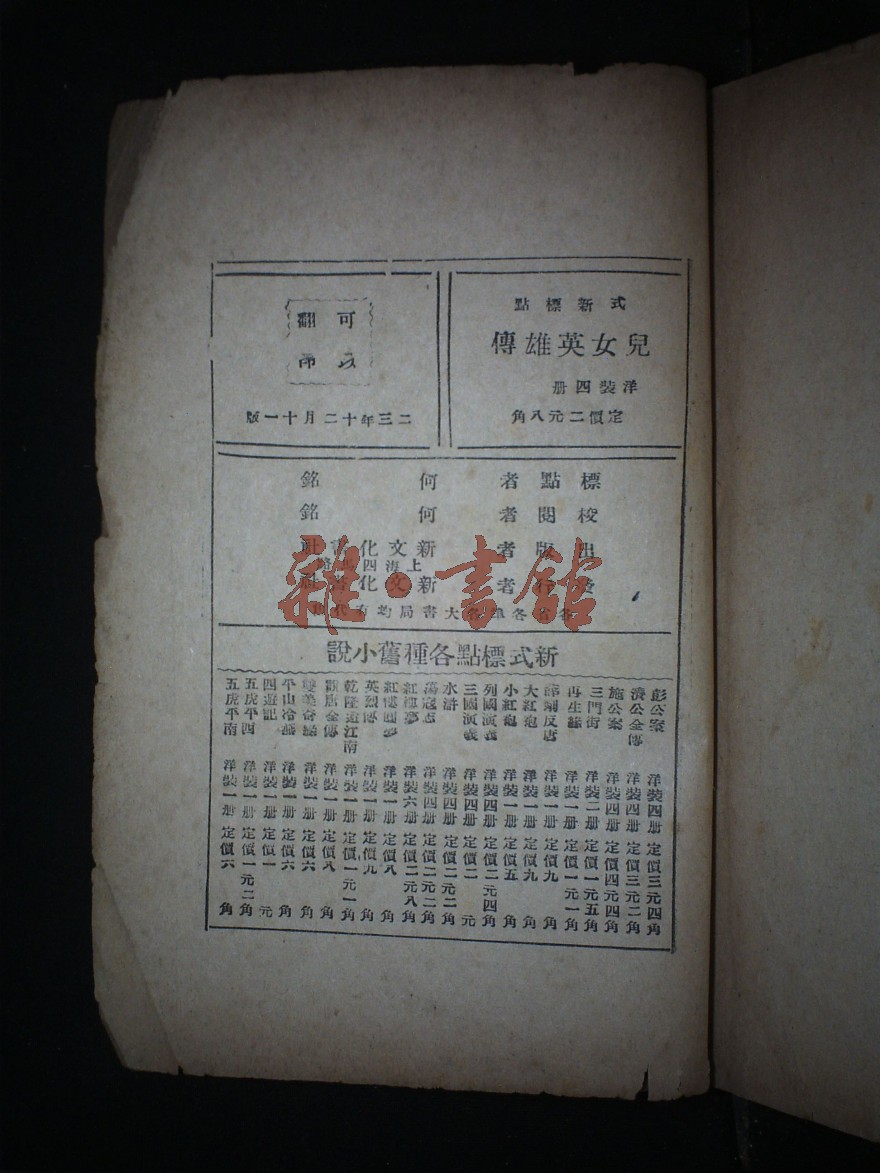 新式標點
兒女英雄傳
洋裝四册
定價二元八角
可
翻
印
二三年十二月十一版
標點者 何銘
校閱者 何銘
出版者 新文化書社
上海四馬路
發行者 新文化書社
各省各埠各大書局均有代
雜·書館
新式標點各種舊小說
彭公案 洋裝四册 定價三元四角
濟公全傳 洋裝四册 定價三元二角
施公案 洋裝四册 定價四元四角
三門街 洋裝二册 定價一元五角
再生緣 洋裝一册 定價一元一角
薛剛反唐 洋裝一册 定價九角
大紅袍 洋裝一册 定價九角
小紅袍 洋裝一册 定價五角
列國演義 洋裝四册 定價二元四角
三國演義 洋裝四册 定價二元
水滸 洋裝四册 定價二元二角
蕩寇志 洋裝四册 定價二元二角
紅樓夢 洋裝六册 定價二元八角
紅樓圓夢 洋裝一册 定價八角
英烈傳 洋裝一册 定價九角
乾隆遊江南 洋裝一册 定價一元一角
說唐全傳 洋裝一册 定價八角
雙美奇緣 洋裝一册 定價六角
平山冷燕 洋裝一册 定價六角
四遊記 洋裝一册 定價一元
五虎平西 洋裝一册 定價一元二角
五虎平南 洋裝一册 定價六角